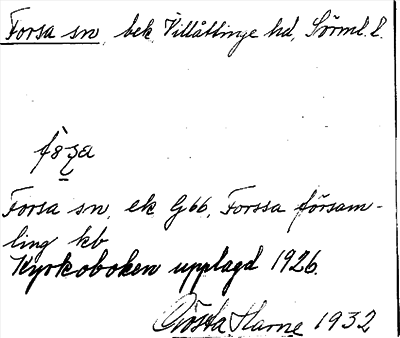 Forsa sn, bek. Villåttinge hd, Sörml. l.
Forsa sn, ek G66, Forssa försam-
ling kb
Kyrkoboken upplagd 1926.
Gösta Harne 1932